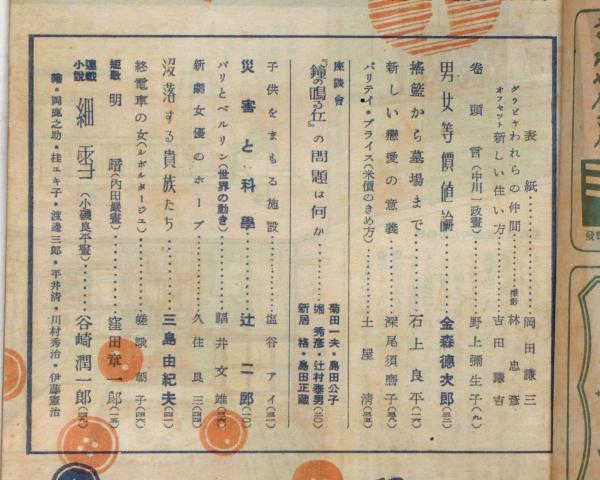 表紙……岡田謙三
グラビヤ われらの仲間……撮影 林忠彦
オフセット 新しい住い方……吉田謙吉
巻頭言(中川一政畫)……野上彌生子(九)
男女等價値論……金森德次郎
搖籃から墓場まで……石上良平
新しい戀愛の意義……深尾須磨子
パリティ・プライス(米價のきめ方)……土屋清
座談會
『鐘の鳴る丘』の問題は何か……菊田一夫・島田公子
堀秀彦・辻村泰男
新居格・島田正蔵
子供をまもる施設……塩谷アイ
災害と科學……辻二郎
パリとベルリン(世界の動き)……福井文雄
新劇女優のホープ……久住良三
沒落する貴族たち……三島由紀夫
終電車の女(ルポルタージュ)……嵯峨朝子
短歌 明暗(内田巖畫)……窪田章一郎
連載小説 細雪(小磯良平畫)……谷崎潤一郎
岡鹿之助・桂ユキ子・渡邊三郎・平井清・川村秀治・伊藤憲治